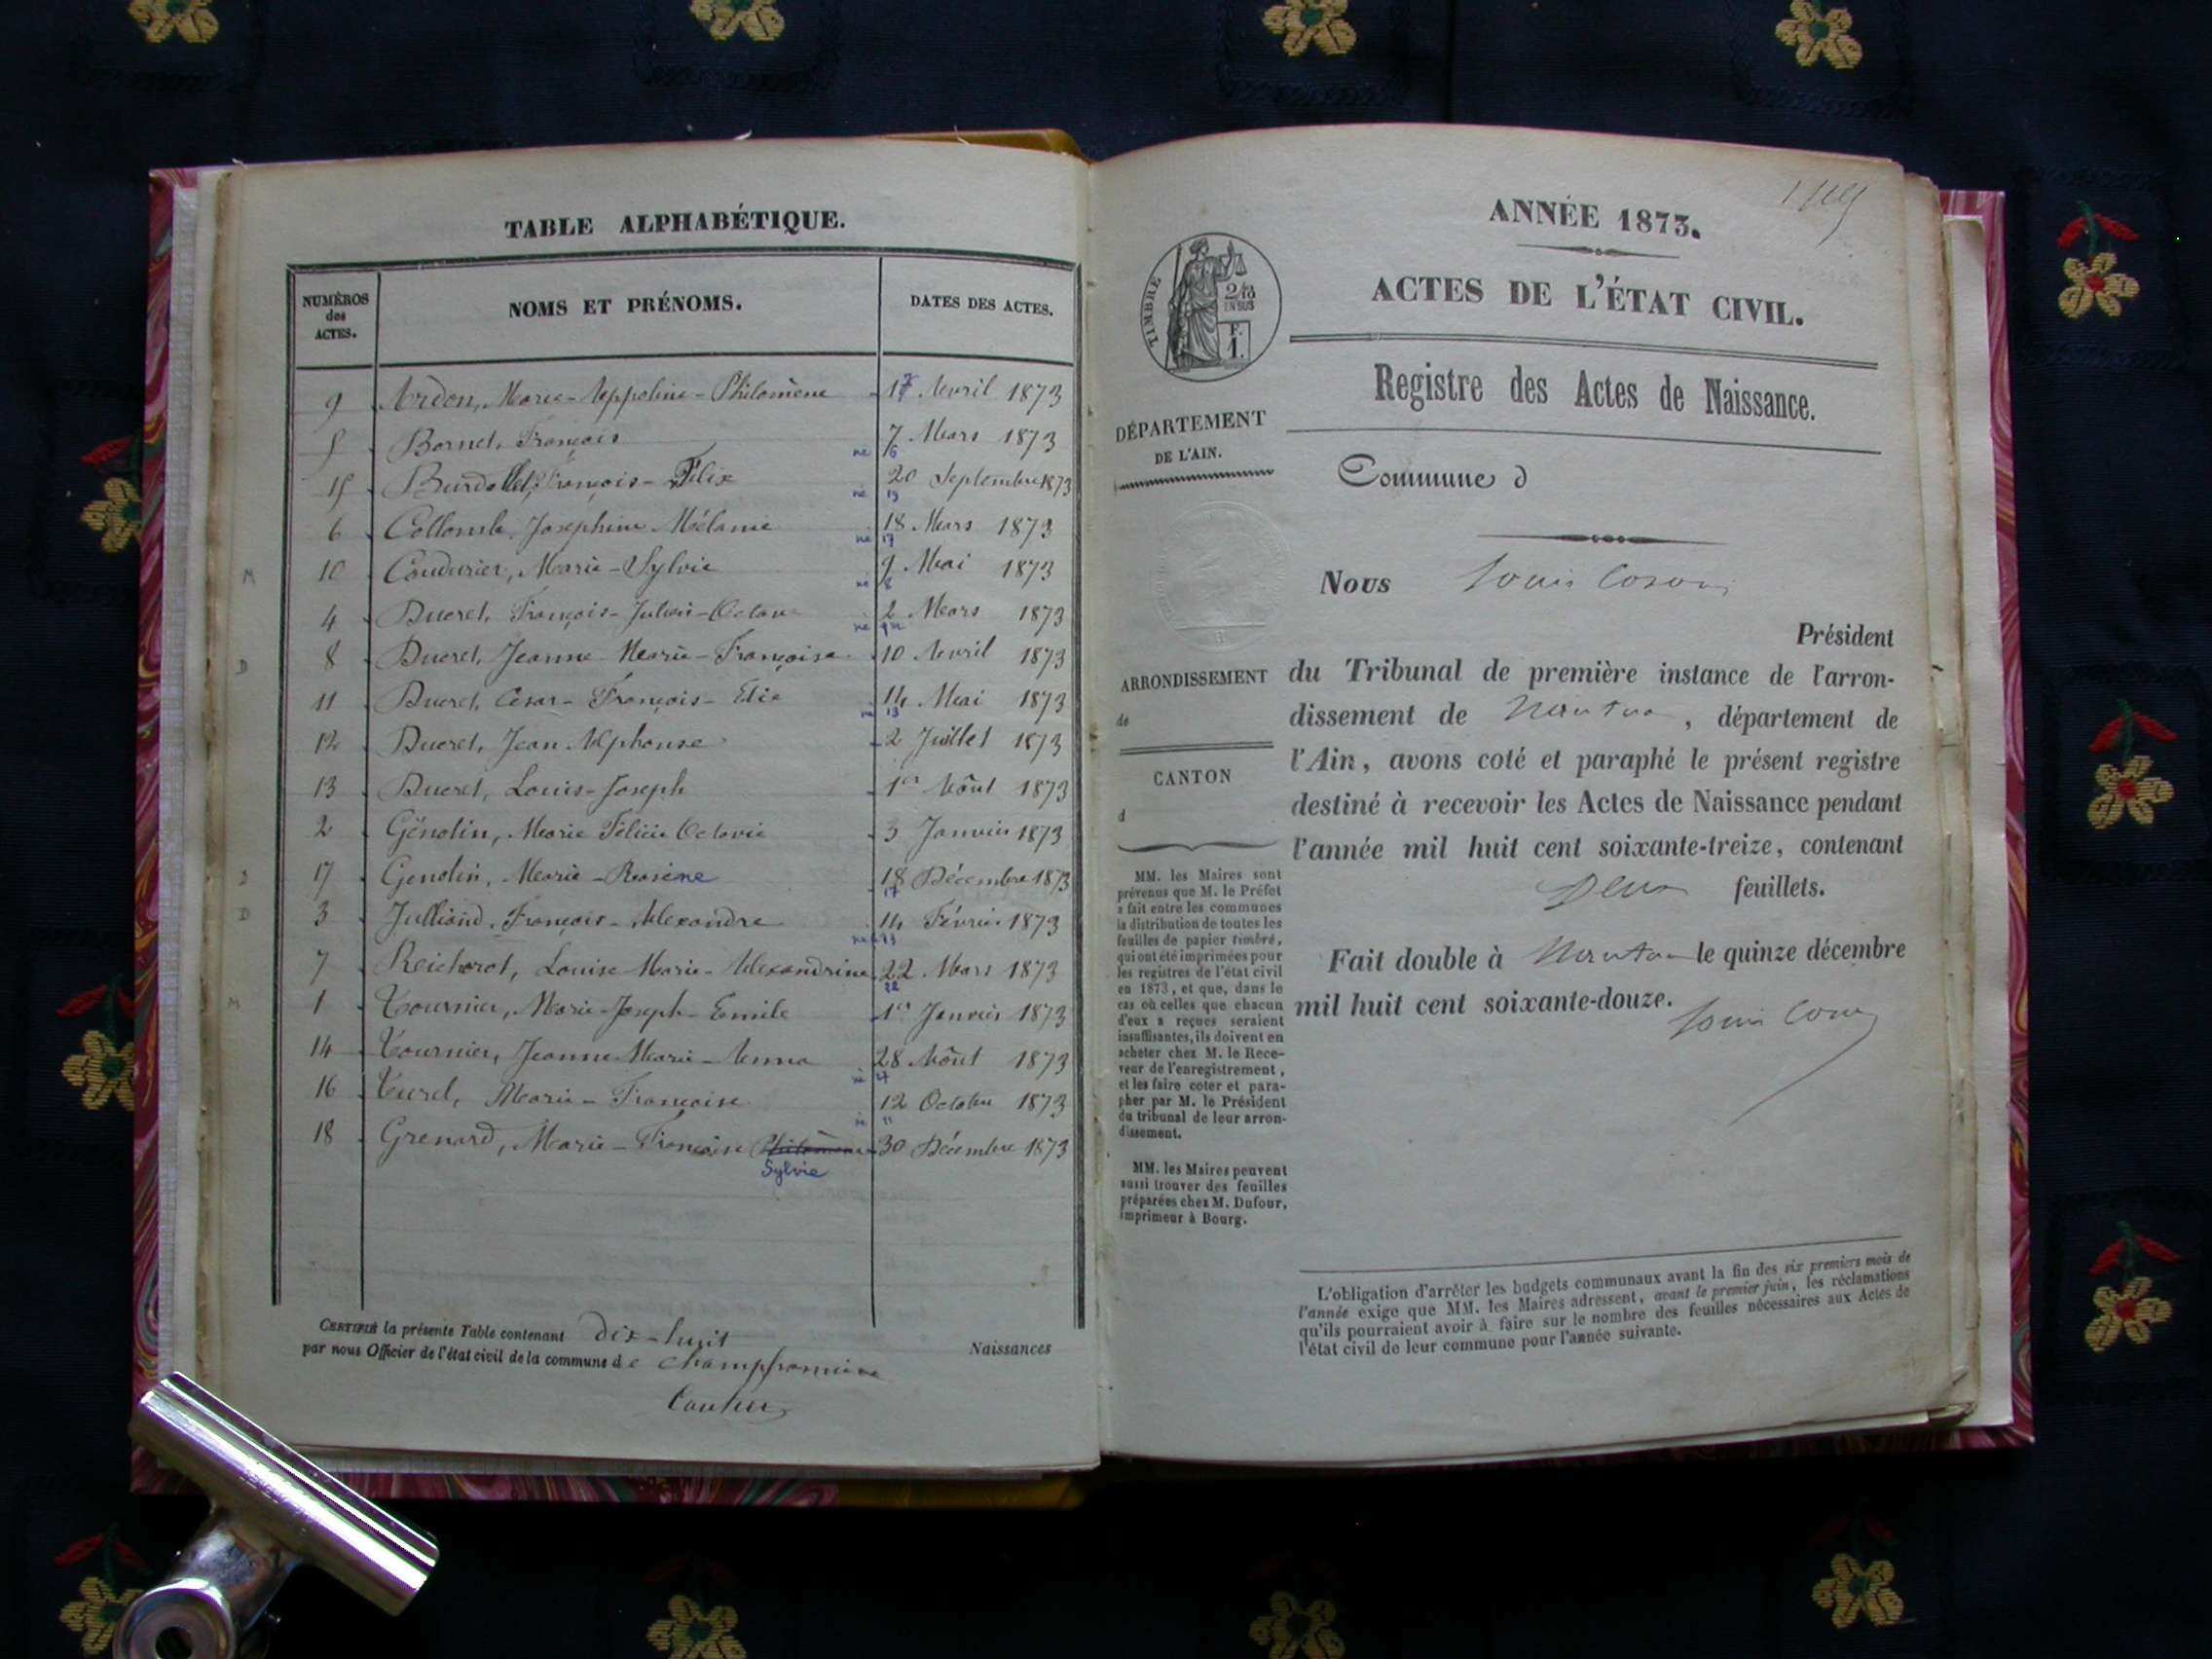 TABLE ALPHABÉTIQUE.
NUMÉROS des ACTES. NOMS ET PRÉNOMS. DATES DES ACTES.
9 Ardon, Marie-Appoline-Philomène 17 Avril 1873
5 Bornet, François 7 Mars 1873
né 6
15 Burdallet, François-Félix 20 Septembre 1873
né 19
6 Collomb, Joséphine Mélanie 18 Mars 1873
né 17
M 10 Coudurier, Marie-Sylvie 9 Mai 1873
né 8
4 Ducret, François-Julien-Octave 2 Mars 1873
né
D 8 Ducret, Jeanne Marie-Françoise 10 Avril 1873
11 Ducret, César-François-Elie 14 Mai 1873
né 13
12 Ducret, Jean Alphonse 2 Juillet 1873
13 Ducret, Louis-Joseph 1er Août 1873
2 Génolin, Marie Félicie Octavie 3 Janvier 1873
D 17 Genolin, Marie-Rosine 18 Décembre 1873
17
D 3 Julliand, François-Alexandre 14 Février 1873
né 13
7 Reichorot, Louise-Marie-Alexandrine 22 Mars 1873
22
M 1 Tournier, Marie-Joseph-Emile 1er Janvier 1873
14 Tournier, Jeanne Marie-Anna 28 Août 1873
né 27
16 Turel, Marie-Françoise 12 Octobre 1873
né 11
18 Grenard, Marie-Françoise Philomène 30 Décembre 1873
Sylvie
CERTIFIÉ la présente Table contenant dix-huit Naissances
par nous Officier de l'état civil de la commune de Champfromier
ANNÉE 1873.
ACTES DE L'ÉTAT CIVIL.
TIMBRE
2/10
EN SUS
F.
1.
Registre des Actes de Naissance.
DÉPARTEMENT
DE L'AIN.
Commune d
Nous Louis
Président
ARRONDISSEMENT
de
CANTON
d
du Tribunal de première instance de l'arron-
dissement de Nantua, département de
l'Ain, avons coté et paraphé le présent registre
destiné à recevoir les Actes de Naissance pendant
l'année mil huit cent soixante-treize, contenant
Deux feuillets.
Fait double à Nantua le quinze décembre
mil huit cent soixante-douze.
Louis
MM. les Maires sont
prévenus que M. le Préfet
a fait entre les communes
la distribution de toutes les
feuilles de papier timbré,
qui ont été imprimées pour
les registres de l'état civil
en 1873, et que, dans le
cas où celles que chacun
d'eux a reçues seraient
insuffisantes, ils doivent en
acheter chez M. le Rece-
veur de l'enregistrement,
et les faire coter et para-
pher par M. le Président
du tribunal de leur arron-
dissement.
MM. les Maires peuvent
aussi trouver des feuilles
préparées chez M. Dufour,
imprimeur à Bourg.
L'obligation d'arrêter les budgets communaux avant la fin des six premiers mois de
l'année exige que MM. les Maires adressent, avant le premier juin, les réclamations
qu'ils pourraient avoir à faire sur le nombre des feuilles nécessaires aux Actes de
l'état civil de leur commune pour l'année suivante.